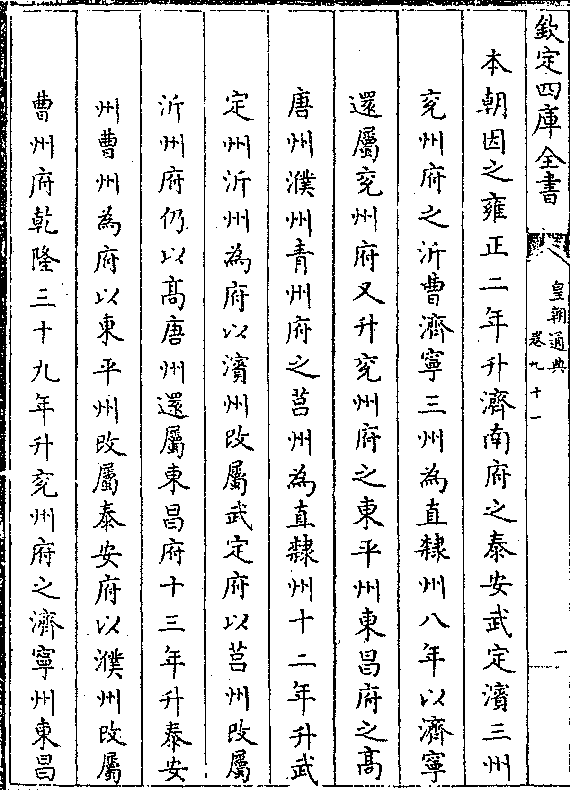 欽定四庫全書
皇朝通典
卷九十一
一
本朝因之雍正二年升濟南府之泰安武定濱三州
兖州府之沂曹濟寧三州為直隸州八年以濟寧
還屬兖州府又升兖州府之東平州東昌府之髙
唐州濮州青州府之莒州為直隸州十二年升武
定州沂州為府以濱州改屬武定府以莒州改屬
沂州府仍以髙唐州還屬東昌府十三年升泰安
州曹州為府以東平州改屬泰安府以濮州改屬
曹州府乾隆三十九年升兖州府之濟寧州東昌